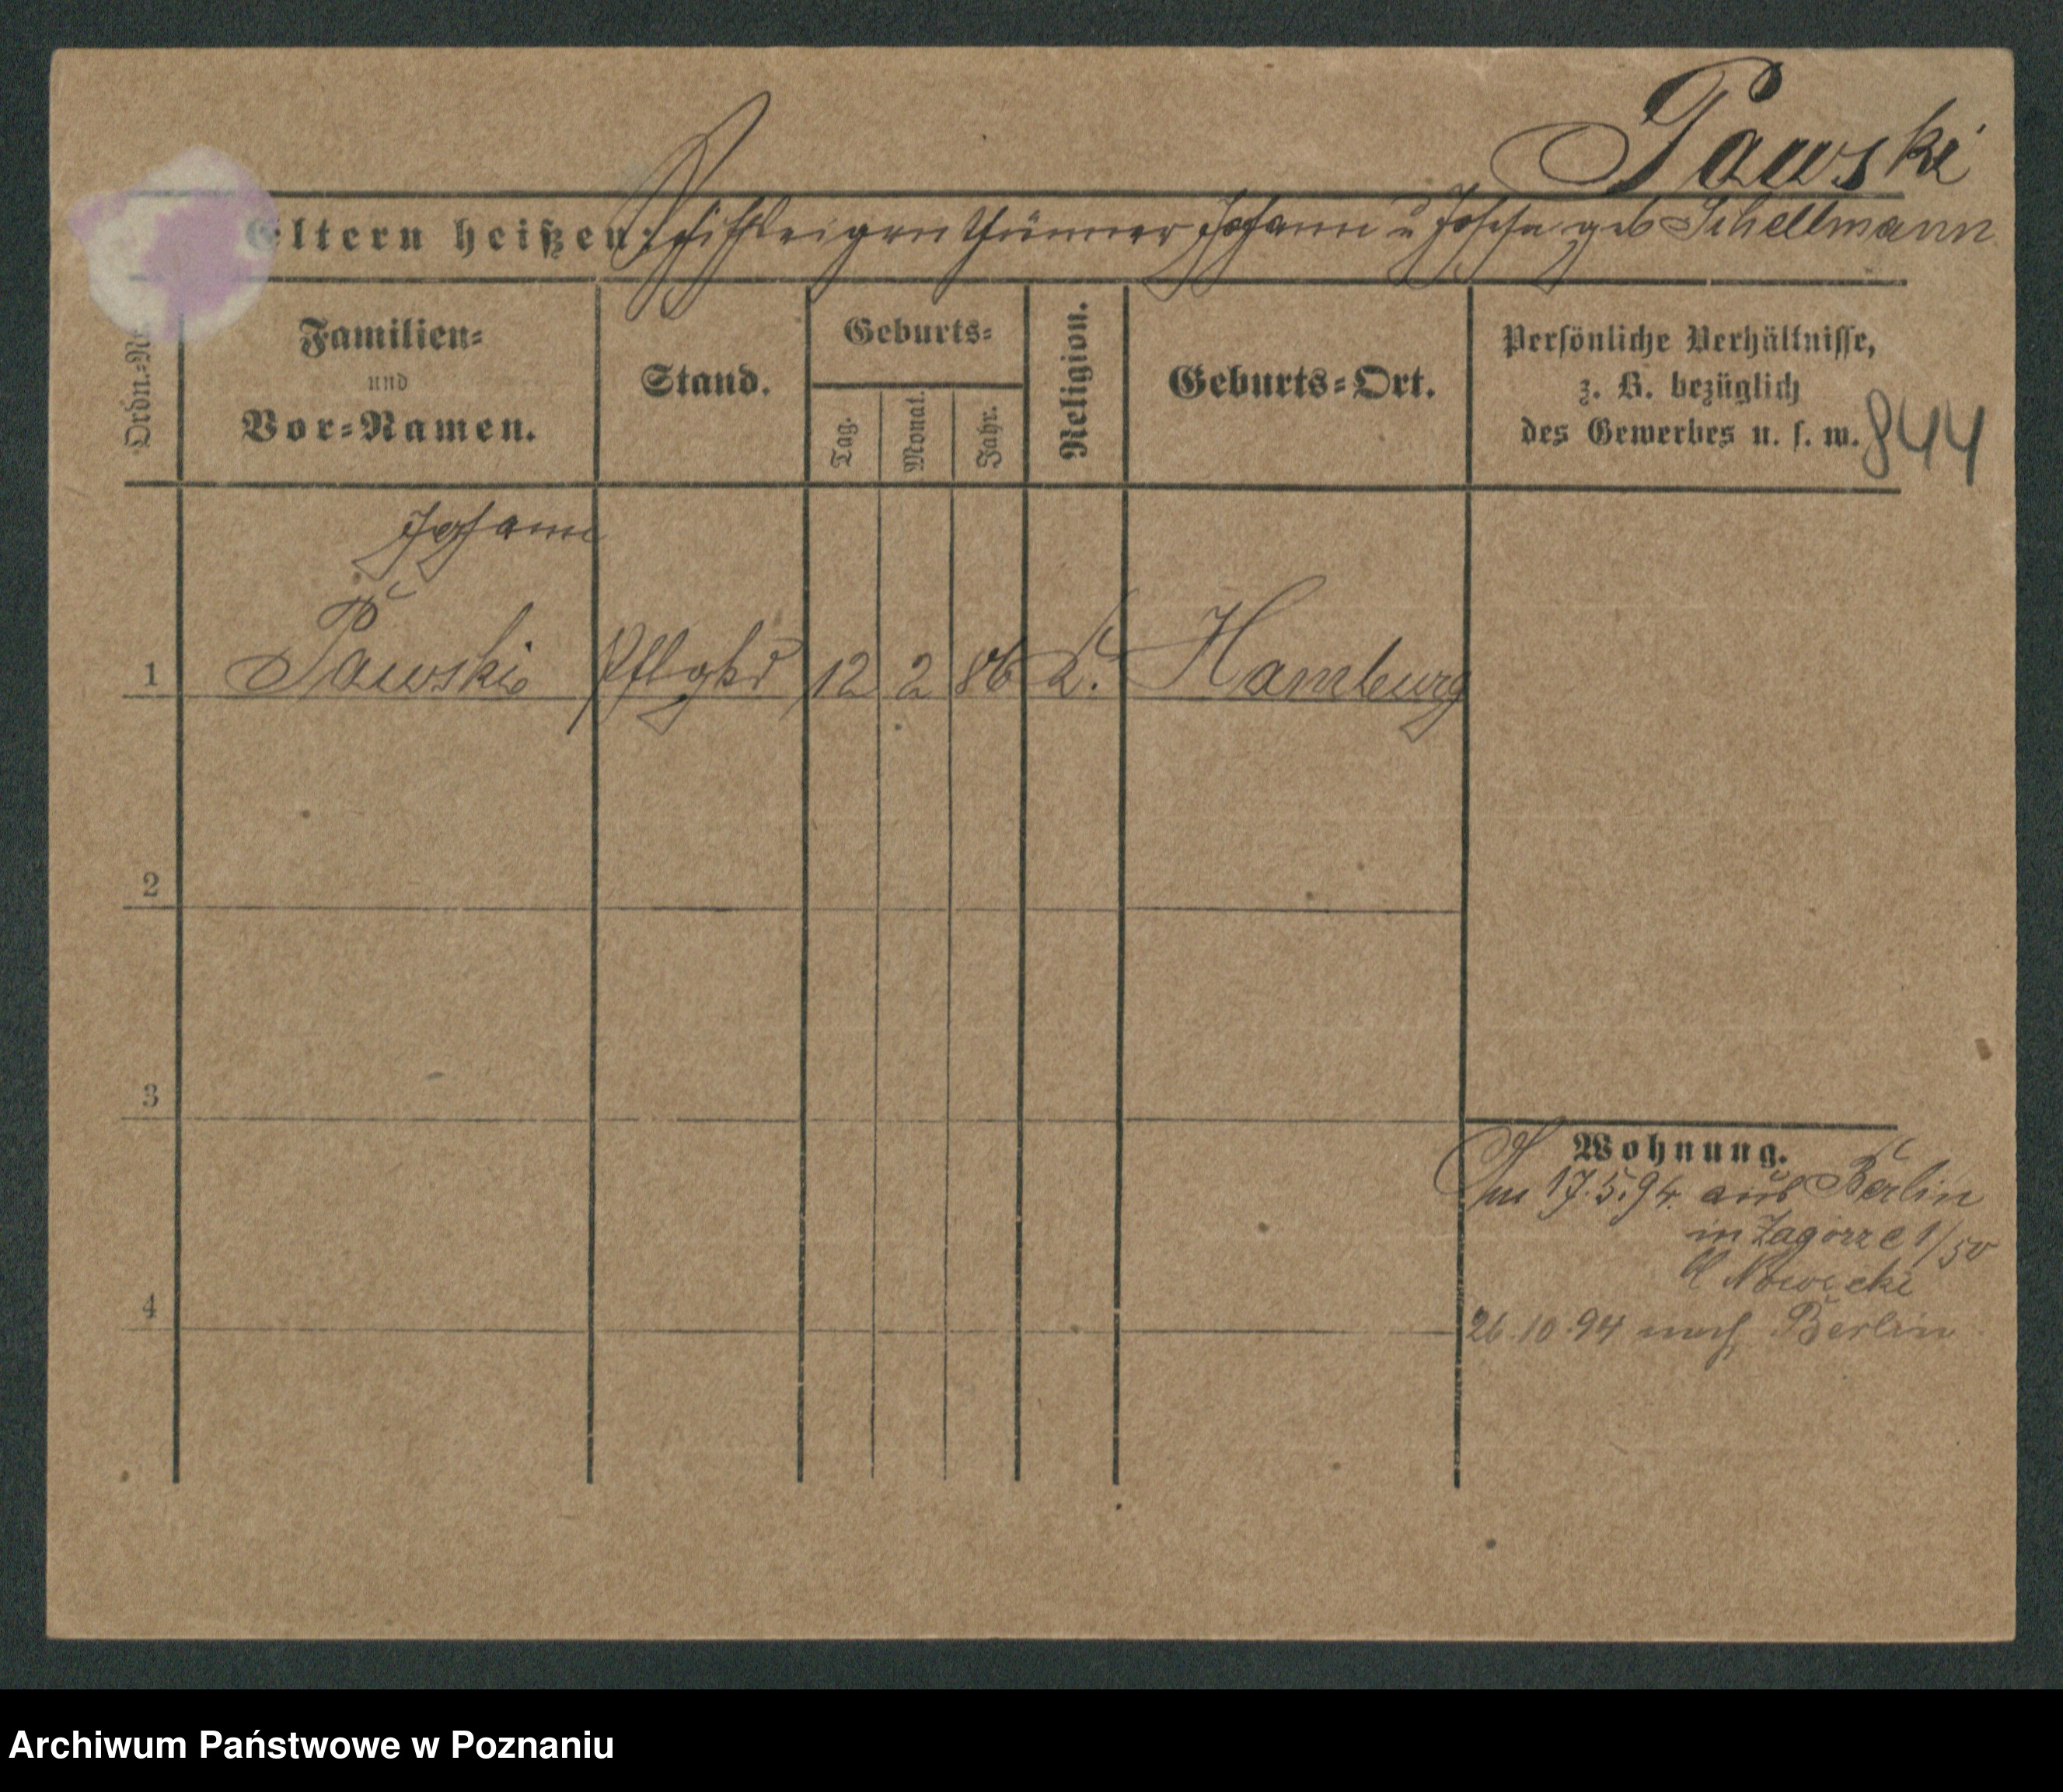 Pawski
Eltern heißen: Schiffseigenthümer Johann u Josefa geb Schellmann
Ordn.-Nr.
Familien-
und
Vor-Namen.
Stand.
Geburts-
Tag.
Monat.
Jahr.
Religion.
Geburts-Ort.
Persönliche Verhältnisse,
z. B. bezüglich
des Gewerbes u. s. w.
844
Johann
1 Pawski Pflgkd 12 2 86 k. Hamburg
2
3
Wohnung.
Am 17.5.94. aus Berlin
in Zagorze 1/50
Nowicki
4
26.10.94 nach Berlin
Archiwum Państwowe w Poznaniu